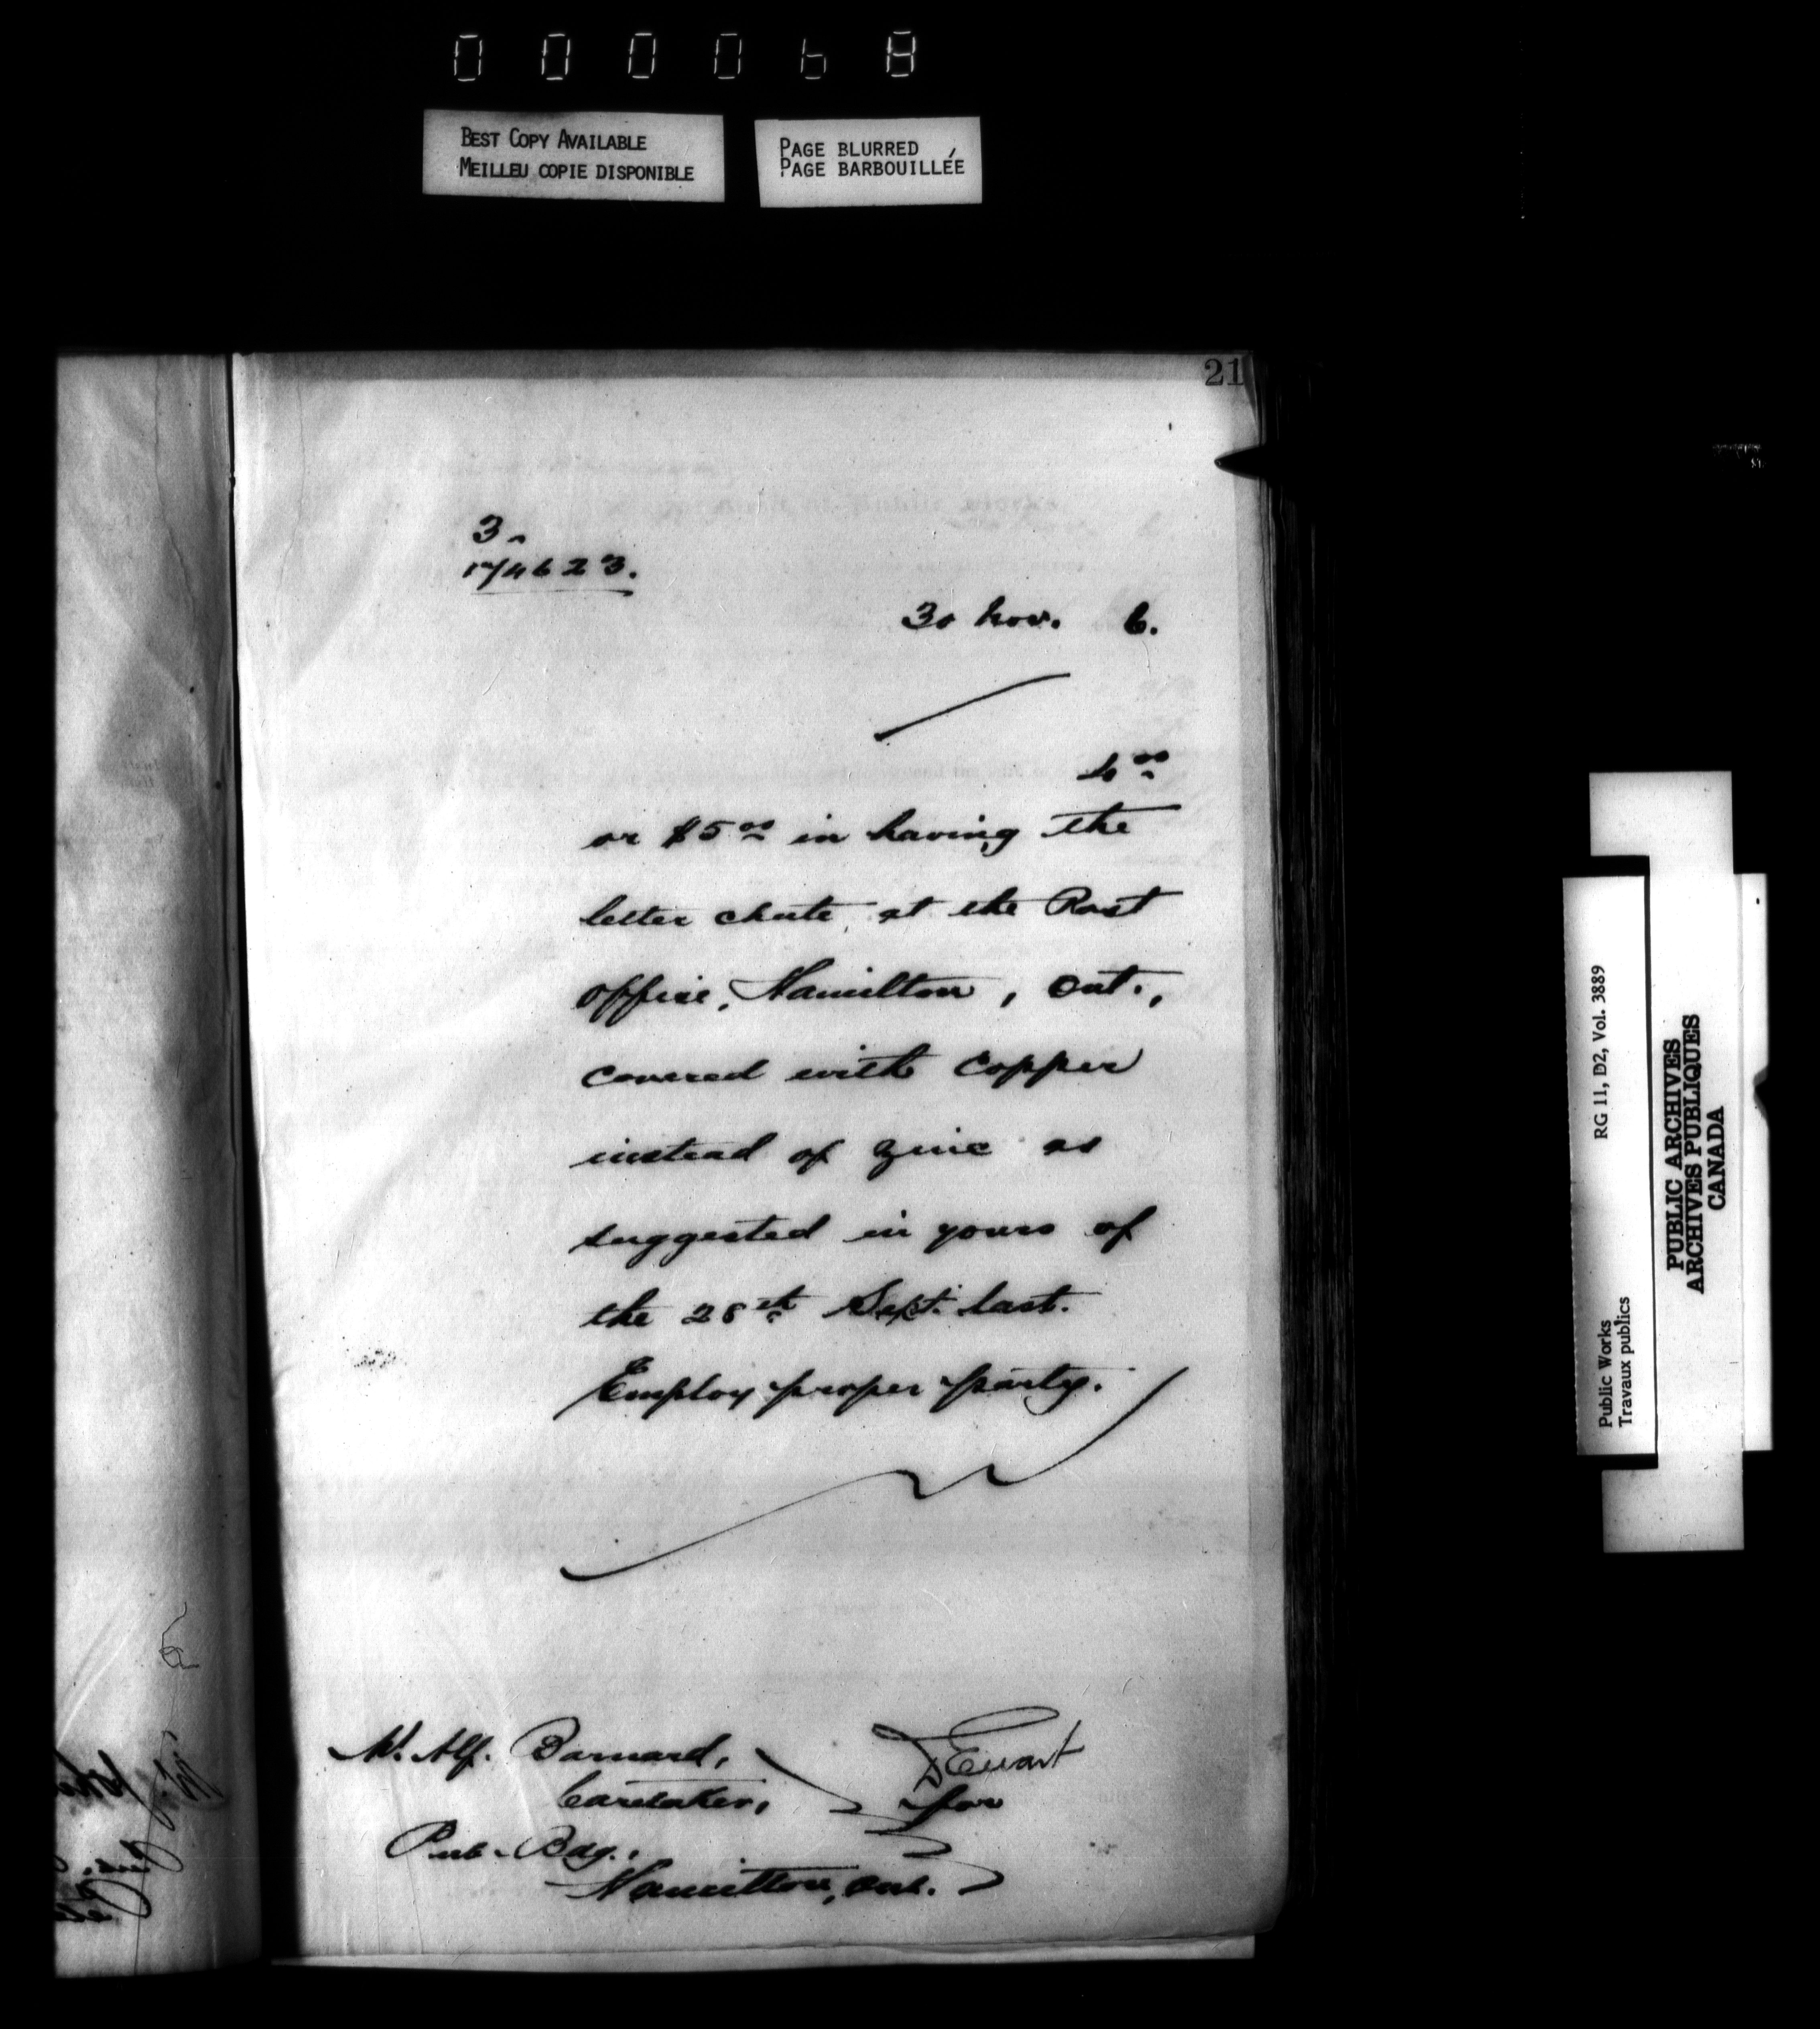 000068
BEST COPY AVAILABLE
MEILLEU COPIE DISPONIBLE
PAGE BLURRED
PAGE BARBOUILLÉE
21
3.
30 Nov. 6.
4 00
or $5 00 in having the
letter chute, at the Post
Office, Hamilton, Ont.,
covered with copper
instead of zinc as
suggested in yours of
the 28th Sept. last.
Employ proper party.
Mr. Alf. Barnard,
Caretaker,
Pub. Bdg.,
Hamilton, Ont.
D Ewart
for
Public Works
Travaux publics
RG 11, D2, Vol. 3889
PUBLIC ARCHIVES
ARCHIVES PUBLIQUES
CANADA